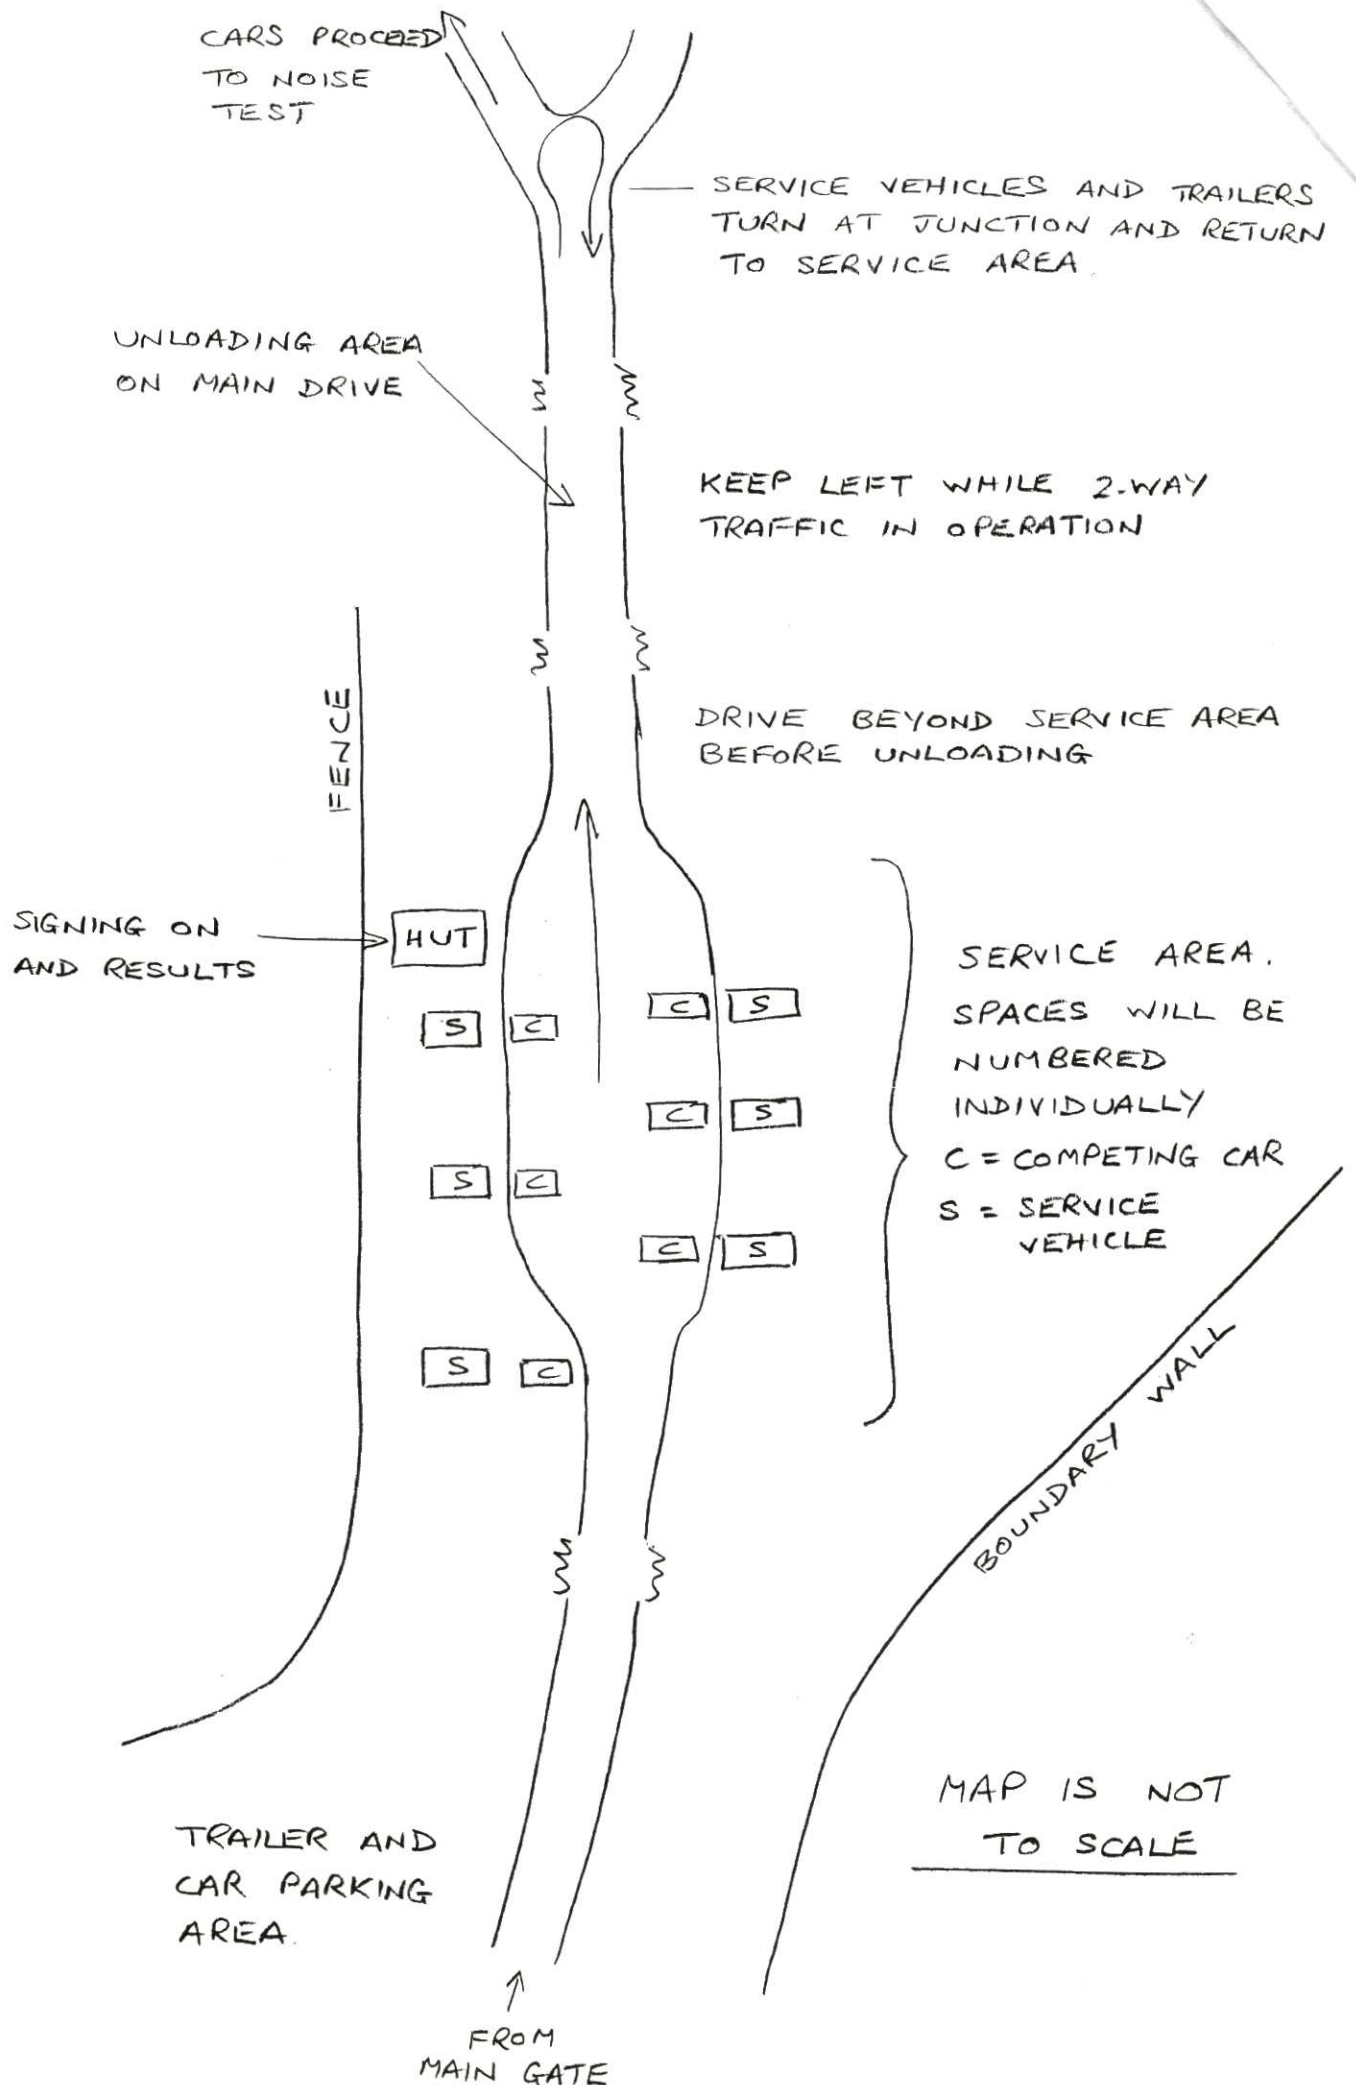 CARS PROCEED
TO NOISE
TEST
SERVICE VEHICLES AND TRAILERS
TURN AT JUNCTION AND RETURN
TO SERVICE AREA.
UNLOADING AREA
ON MAIN DRIVE
KEEP LEFT WHILE 2-WAY
TRAFFIC IN OPERATION
FENCE
DRIVE BEYOND SERVICE AREA
BEFORE UNLOADING
SIGNING ON
AND RESULTS
HUT
SERVICE AREA.
SPACES WILL BE
NUMBERED
INDIVIDUALLY
C = COMPETING CAR
S = SERVICE
VEHICLE
C S
S C
C S
S C
C S
S C
BOUNDARY WALL
MAP IS NOT
TO SCALE
TRAILER AND
CAR PARKING
AREA.
FROM
MAIN GATE